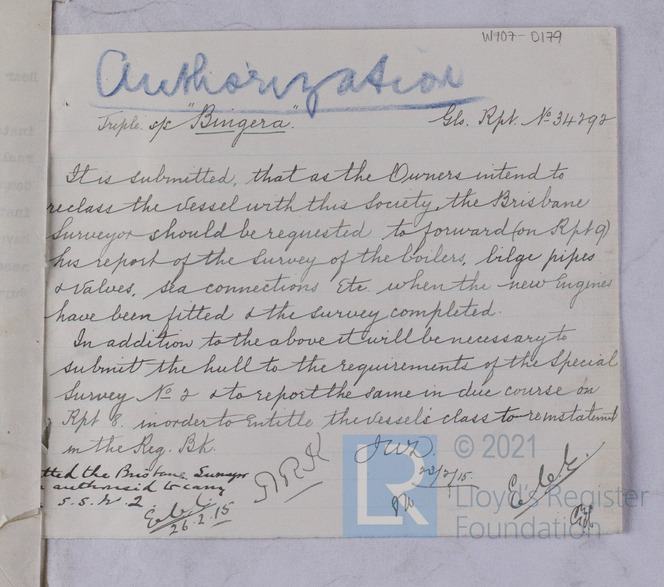 W907-0179
Authorization
Triple s/s "Bingera". Gls. Rpt. No 34292
It is submitted, that as the Owners intend to
reclass the Vessel with this Society, the Brisbane
Surveyor should be requested to forward (on Rpt 9)
his report of the survey of the boilers, bilge pipes
& valves, sea connections Etc when the new Engines
have been fitted & the survey completed.
In addition to the above it will be necessary to
submitt the hull to the requirements of the Special
Survey No 2 & to report the same in due course on
Rpt 8. in order to Entitle the vessel's class to reinstatement
in the Reg. Bk.
the Brisbane Surveyor
authorised to carry
S.S. No. 2
26.2.15
© 2021
LR
Lloyd's Register
Foundation